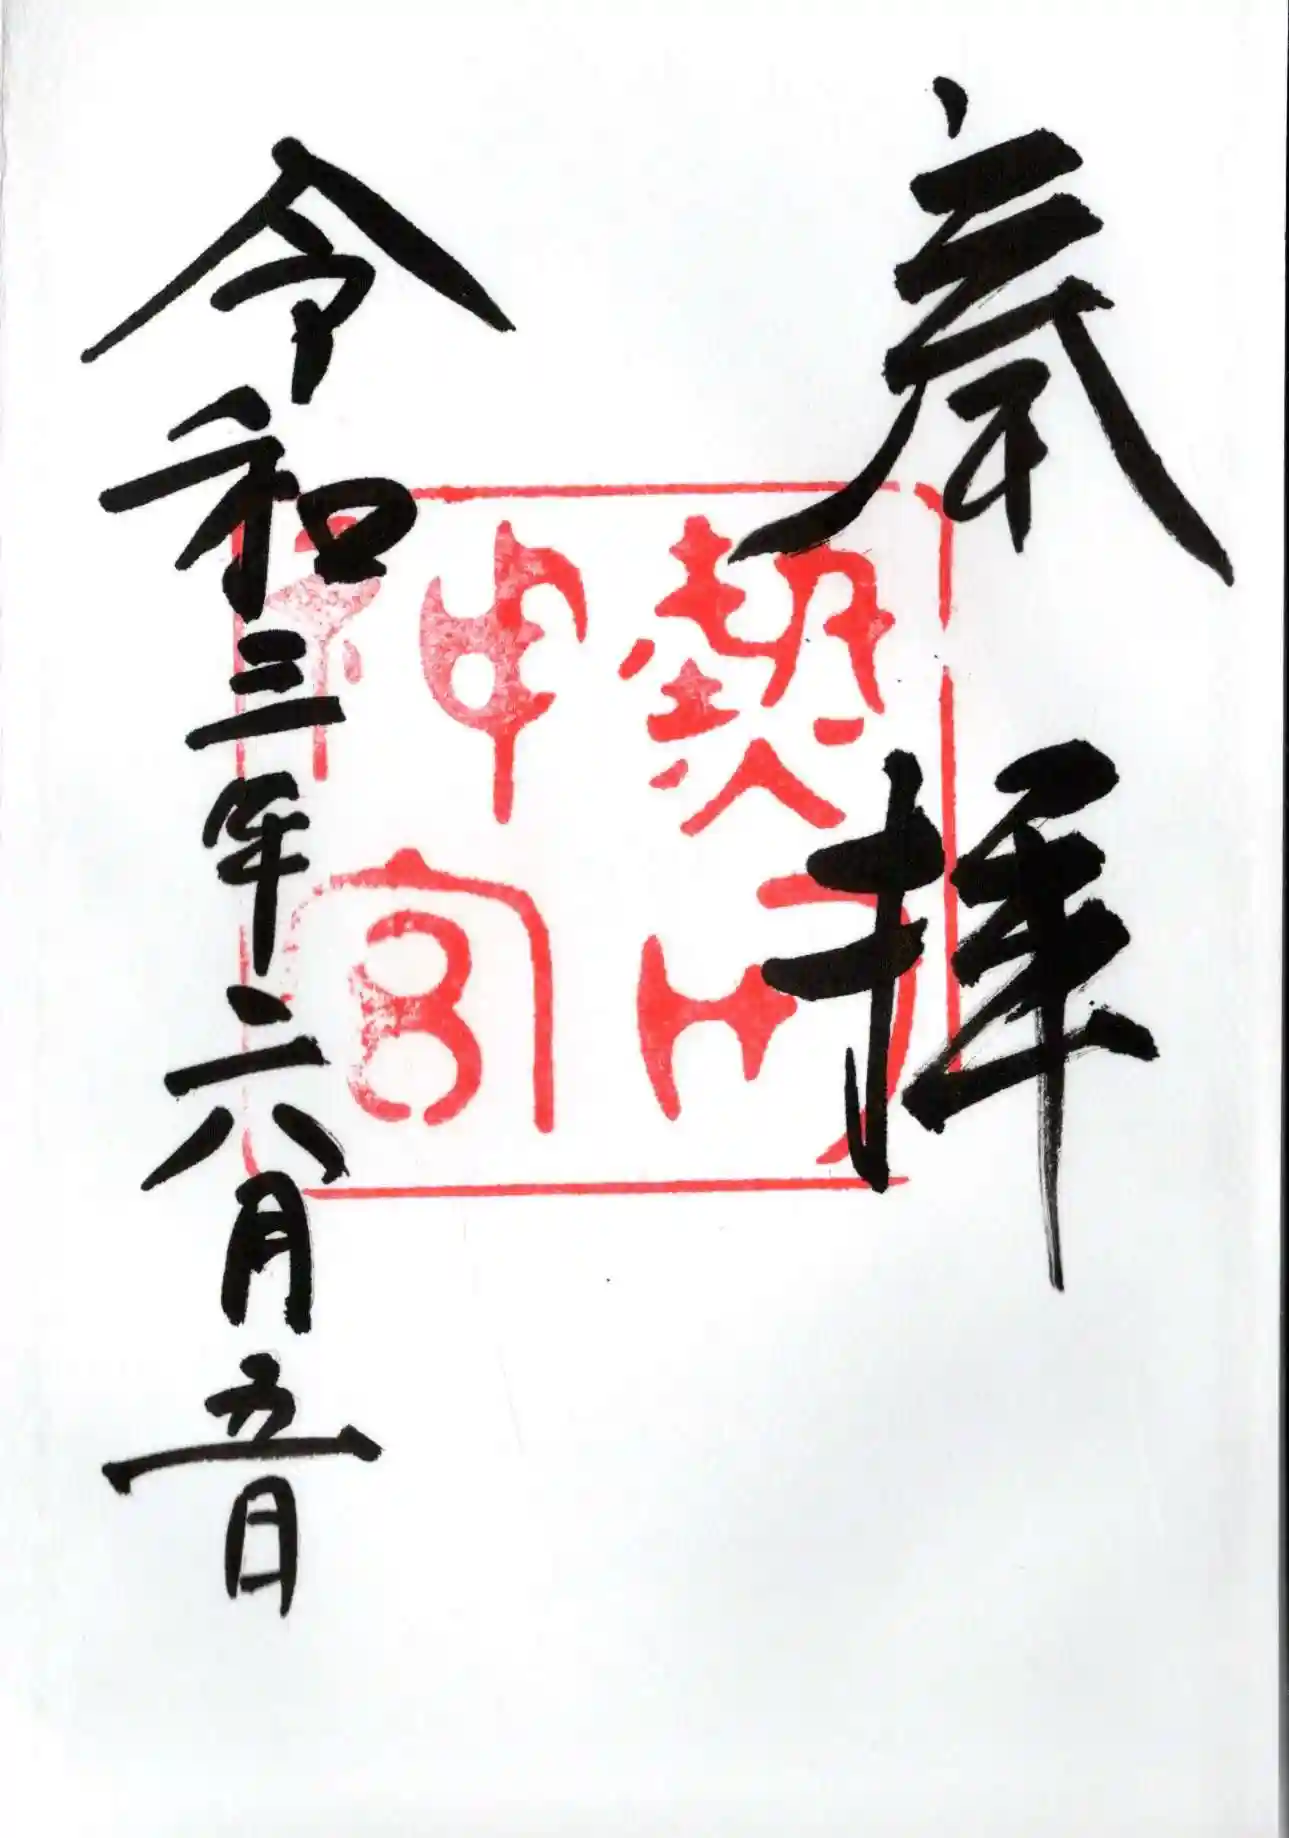 奉拝
熱田神宮
令和三年六月五日